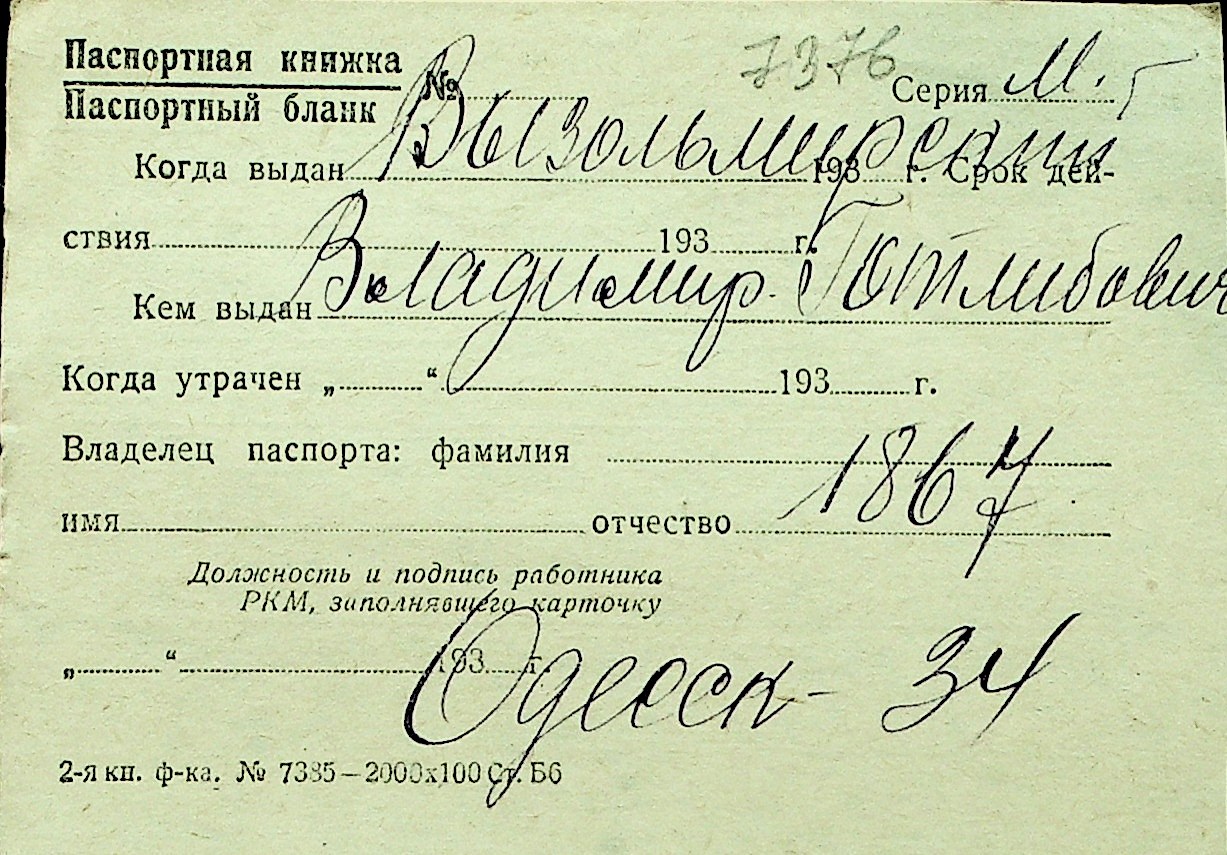 7376
Паспортная книжка
Паспортный бланк № Серия М.
Вызольмирский
Когда выдан 193 г. Срок дей-
ствия 193 г.
Владимир Готлибович
Кем выдан
Когда утрачен „ “ 193 г.
Владелец паспорта: фамилия
1867
имя отчество
Должность и подпись работника
РКМ, заполнявшего карточку
„ “ 193 г.
Одесск- 34
2-я кн. ф-ка. № 7385—2000х100 Ст. Б6